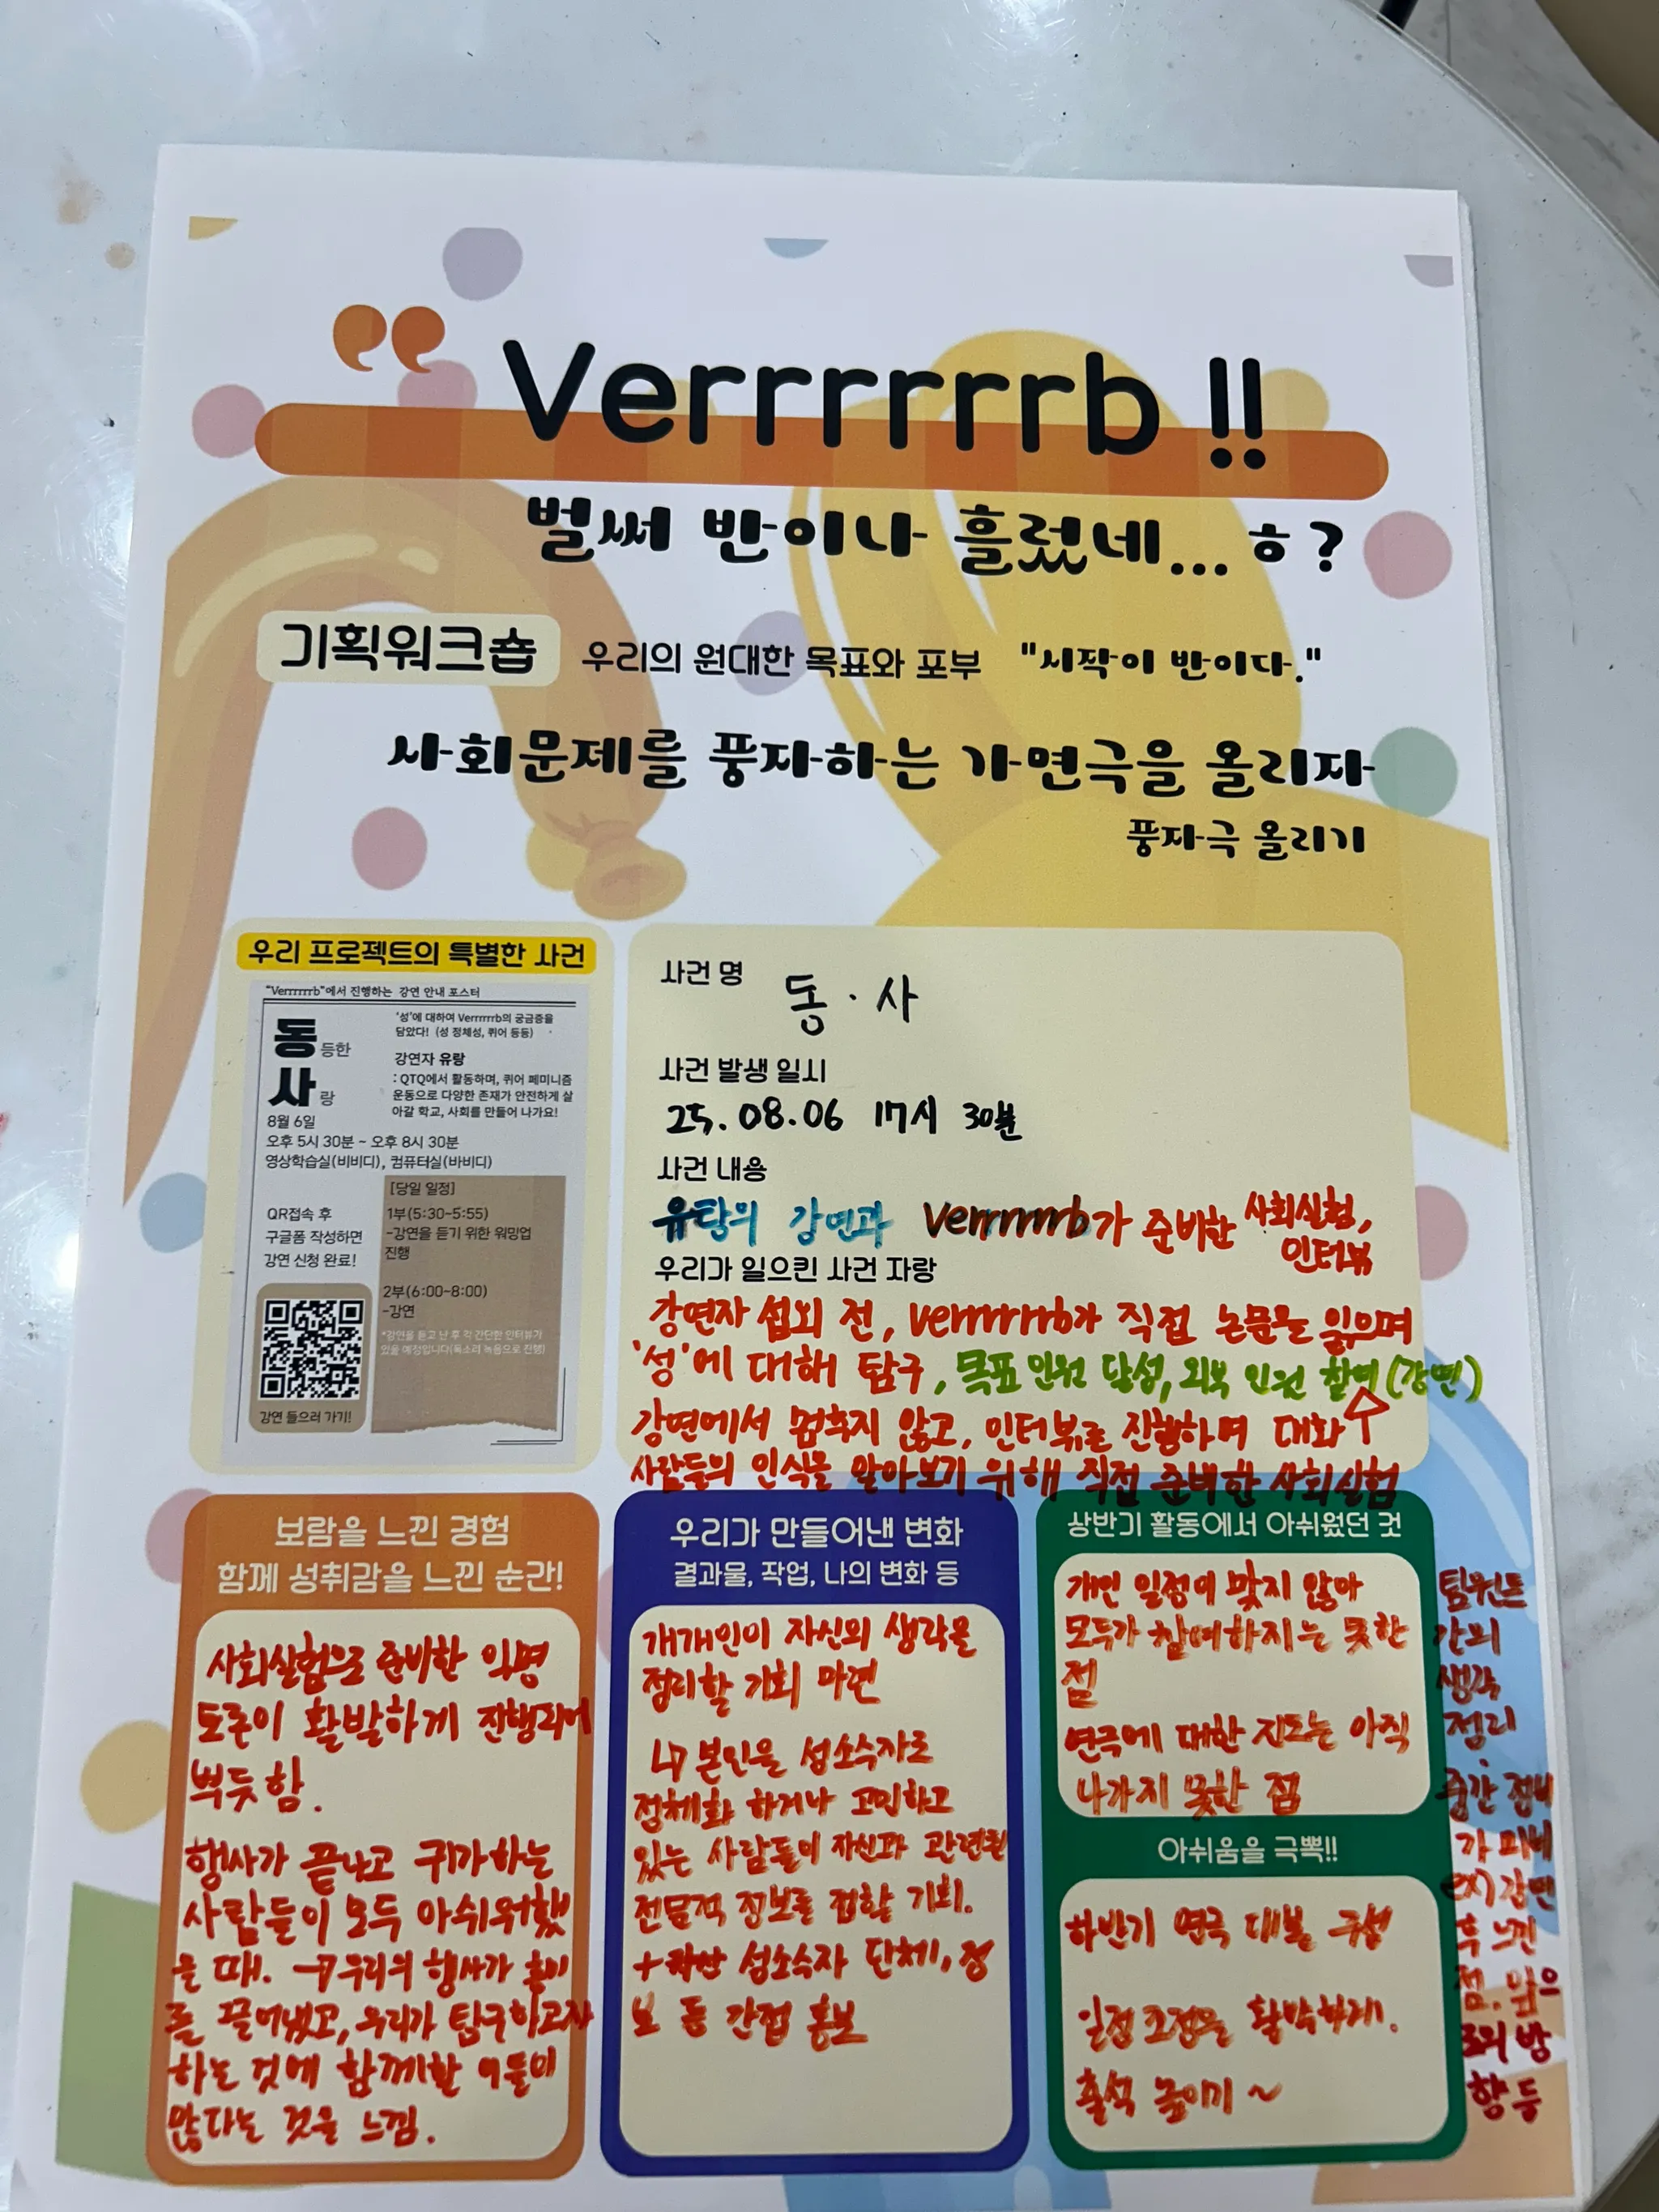 Verrrrrrb !!
벌써 반이나 흘렀네... ㅎ?
기획워크숍 우리의 원대한 목표와 포부 "시작이 반이다."
사회문제를 풍자하는 가면극을 올리자
풍자극 올리기
우리 프로젝트의 특별한 사건
"Verrrrrrb"에서 진행하는 강연 안내 포스터
동등한
사랑
'성'에 대하여 Verrrrrrb의 궁금증을
담았다! (성 정체성, 퀴어 등등)
강연자 유랑
: QTQ에서 활동하며, 퀴어 페미니즘
운동으로 다양한 존재가 안전하게 살
아갈 학교, 사회를 만들어 나가요!
8월 6일
오후 5시 30분 ~ 오후 8시 30분
영상학습실(비비디), 컴퓨터실(바비디)
QR접속 후
구글폼 작성하면
강연 신청 완료!
강연 들으러 가기!
[당일 일정]
1부(5:30-5:55)
-강연을 듣기 위한 워밍업
진행
2부(6:00-8:00)
-강연
*강연을 듣고 난 후 각 간단한 인터뷰가
있을 예정입니다(목소리 녹음으로 진행)
사건 명
동·사
사건 발생 일시
25.08.06 17시 30분
사건 내용
강연과 Verrrrrrb가 준비한 사회실험,
인터뷰
우리가 일으킨 사건 자랑
강연자 섭외 전, Verrrrrrb가 직접 논문을 읽으며
'성'에 대해 탐구, 목표 인원 달성, 외부 인원 참여(강연)
강연에서 멈추지 않고, 인터뷰를 진행하며 대화↑
사람들의 인식을 알아보기 위해 직접 준비한 사회실험
보람을 느낀 경험
함께 성취감을 느낀 순간!
사회실험으로 준비한 익명
토론이 활발하게 진행되어
뿌듯함.
행사가 끝나고 귀가하는
사람들이 모두 아쉬워했
을 때. → 우리의 행사가 흥미
를 끌어냈고, 우리가 탐구하고자
하는 것에 함께할 이들이
많다는 것을 느낌.
우리가 만들어낸 변화
결과물, 작업, 나의 변화 등
개개인이 자신의 생각을
정리할 기회 마련
↳ 본인을 성소수자로
정체화 하거나 고민하고
있는 사람들이 자신과 관련된
전문적 정보를 접할 기회.
+ 성소수자 단체, 정
보 등 간접 홍보
상반기 활동에서 아쉬웠던 것
개인 일정이 맞지 않아
모두가 참여하지는 못한
점
연극에 대한 진도는 아직
나가지 못한 점
아쉬움을 극뽁!!
하반기 연극 대본 구성
일정 조정을 확박하게.
출석 높이기 ~
팀원들
간의
생각
정리
중간 점검
가 미비
ex) 강연
후 느낀
점. 앞으
로의 방
향 등